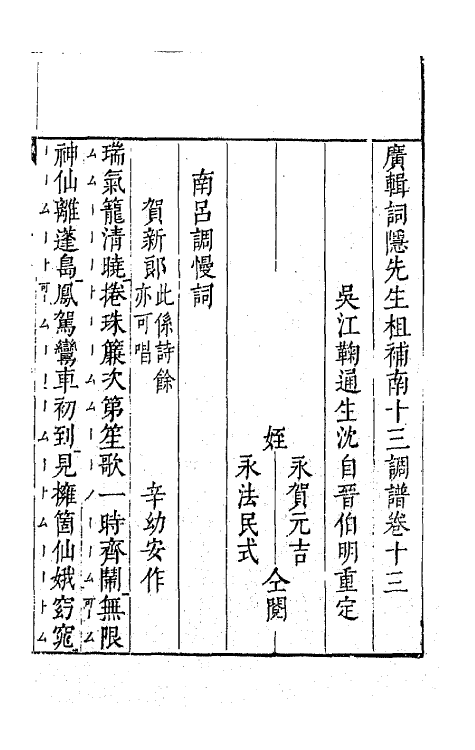 廣輯詞隱先生增補南十三調譜卷十三
吳江鞠通生沈自晉伯明重定
姪
永賀元吉
永法民式
仝閱
南呂調慢詞
賀新郎
此係詩餘
亦可唱
辛幼安作
瑞氣籠清曉捲珠簾次第笙歌一時齊鬧無限
神仙離蓬島鳳駕鸞車初到見擁箇仙娥窈窕